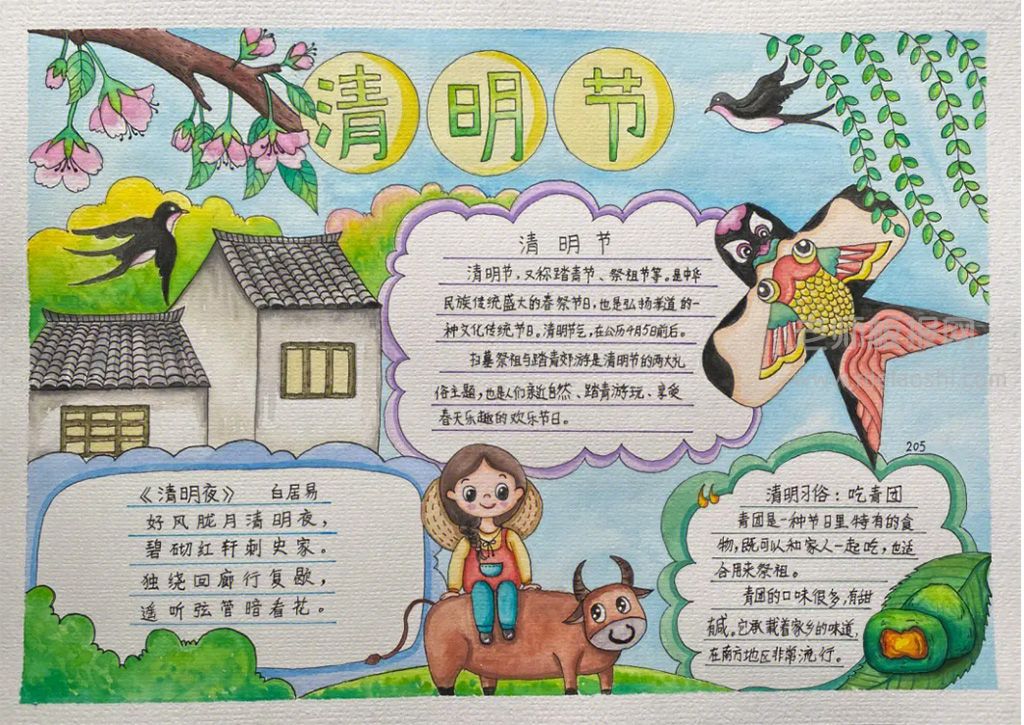 清明节
清明节
清明节,又称踏青节、祭祖节等。是中华
民族传统盛大的春祭节日,也是弘扬孝道的一
种文化传统节日。清明节气,在公历4月5日前后。
扫墓祭祖与踏青郊游是清明节的两大礼
俗主题,也是人们亲近自然、踏青游玩、享受
春天乐趣的欢乐节日。
205
《清明夜》 白居易
好风胧月清明夜,
碧砌红轩刺史家。
独绕回廊行复歇,
遥听弦管暗看花。
清明习俗:吃青团
青团是一种节日里特有的食
物,既可以和家人一起吃,也适
合用来祭祖。
青团的口味很多,有甜
有咸。它承载着家乡的味道,
在南方地区非常流行。